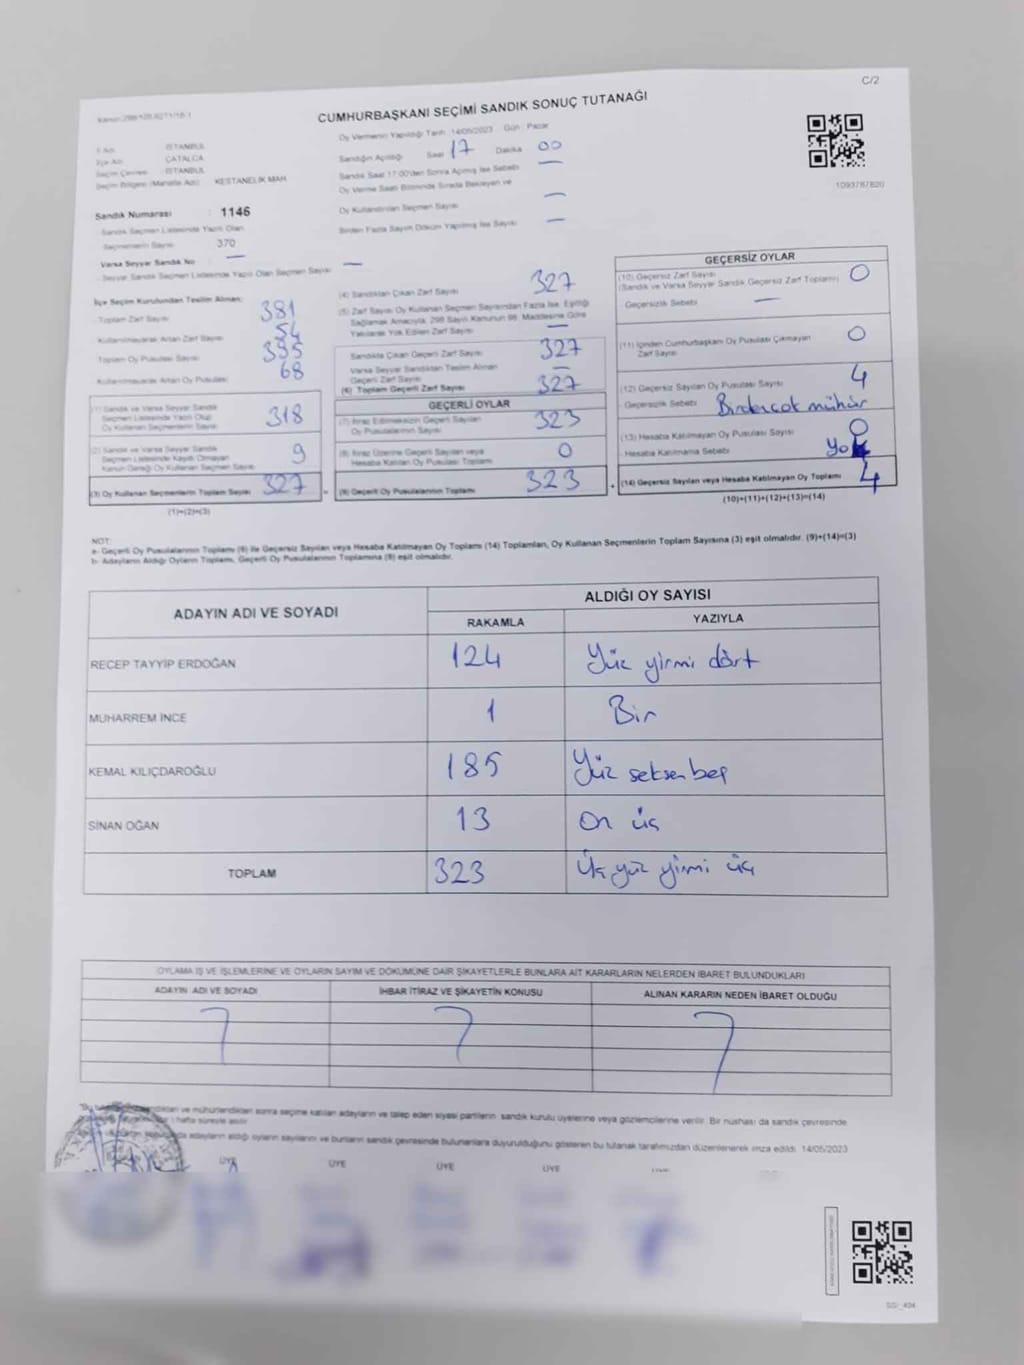 C/2
CUMHURBAŞKANI SEÇİMİ SANDIK SONUÇ TUTANAĞI
Oy Vermenin Yapıldığı Tarih : 14/05/2023 Gün : Pazar
İl Adı : İSTANBUL
İlçe Adı : ÇATALCA
Seçim Çevresi : İSTANBUL
Seçim Bölgesi (Mahalle Adı) : KESTANELİK MAH.
Sandığın Açıldığı Saat 17 Dakika 00
Sandık Saat 17:00'den Sonra Açılmış İse Sebebi —
Oy Verme Saati Bitiminde Sırada Bekleyen ve
Oy Kullandırılan Seçmen Sayısı —
Birden Fazla Sayım Döküm Yapılmış İse Sayısı —
1093787820
Sandık Numarası : 1146
Sandık Seçmen Listesinde Yazılı Olan
Seçmenlerin Sayısı 370
Varsa Seyyar Sandık No : —
Seyyar Sandık Seçmen Listesinde Yazılı Olan Seçmen Sayısı —
İlçe Seçim Kurulundan Teslim Alınan:
Toplam Zarf Sayısı 381
Kullanılmayarak Artan Zarf Sayısı 54
Toplam Oy Pusulası Sayısı 395
Kullanılmayarak Artan Oy Pusulası 68
(1) Sandık ve Varsa Seyyar Sandık
Seçmen Listesinde Yazılı Olup
Oy Kullanan Seçmenlerin Sayısı 318
(2) Sandık ve Varsa Seyyar Sandık
Seçmen Listesinde Kayıtlı Olmayan
Kanun Gereği Oy Kullanan Seçmen Sayısı 9
(3) Oy Kullanan Seçmenlerin Toplam Sayısı 327
(1)+(2)=(3)
(4) Sandıktan Çıkan Zarf Sayısı 327
(5) Zarf Sayısı Oy Kullanan Seçmen Sayısından Fazla İse, Eşitliği
Sağlamak Amacıyla, 298 Sayılı Kanunun 98. Maddesine Göre
Yakılarak Yok Edilen Zarf Sayısı —
Sandıkta Çıkan Geçerli Zarf Sayısı 327
Varsa Seyyar Sandıktan Teslim Alınan
Geçerli Zarf Sayısı —
(6) Toplam Geçerli Zarf Sayısı 327
GEÇERLİ OYLAR
(7) İtiraz Edilmeksizin Geçerli Sayılan
Oy Pusulalarının Sayısı 323
(8) İtiraz Üzerine Geçerli Sayılan veya
Hesaba Katılan Oy Pusulası Toplamı 0
(9) Geçerli Oy Pusulalarının Toplamı 323
GEÇERSİZ OYLAR
(10) Geçersiz Zarf Sayısı 0
(Sandık ve Varsa Seyyar Sandık Geçersiz Zarf Toplamı)
Geçersizlik Sebebi —
(11) İçinden Cumhurbaşkanı Oy Pusulası Çıkmayan
Zarf Sayısı 0
(12) Geçersiz Sayılan Oy Pusulası Sayısı 4
Geçersizlik Sebebi Birdençok mühür
(13) Hesaba Katılmayan Oy Pusulası Sayısı 0
Hesaba Katılmama Sebebi Yok
(14) Geçersiz Sayılan veya Hesaba Katılmayan Oy Toplamı 4
(10)+(11)+(12)+(13)=(14)
NOT:
a- Geçerli Oy Pusulalarının Toplamı (9) ile Geçersiz Sayılan veya Hesaba Katılmayan Oy Toplamı (14) Toplamları, Oy Kullanan Seçmenlerin Toplam Sayısına (3) eşit olmalıdır. (9)+(14)=(3)
b- Adayların Aldığı Oyların Toplamı, Geçerli Oy Pusulalarının Toplamına (9) eşit olmalıdır.
ADAYIN ADI VE SOYADI ALDIĞI OY SAYISI
RAKAMLA YAZIYLA
RECEP TAYYİP ERDOĞAN 124 Yüz yirmi dört
MUHARREM İNCE 1 Bir
KEMAL KILIÇDAROĞLU 185 Yüz seksen beş
SİNAN OĞAN 13 On üç
TOPLAM 323 Üç yüz yirmi üç
OYLAMA İŞ VE İŞLEMLERİNE VE OYLARIN SAYIM VE DÖKÜMÜNE DAİR ŞİKAYETLERLE BUNLARA AİT KARARLARIN NELERDEN İBARET BULUNDUKLARI
ADAYIN ADI VE SOYADI İHBAR İTİRAZ VE ŞİKAYETİN KONUSU ALINAN KARARIN NEDEN İBARET OLDUĞU
ve mühürlendikten sonra seçime katılan adayların ve talep eden siyasi partilerin sandık kurulu üyelerine veya gözlemcilerine verilir. Bir nüshası da sandık çevresinde
hafta süreyle asılır.
adayların aldığı oyların sayılarını ve bunların sandık çevresinde bulunanlara duyurulduğunu gösteren bu tutanak tarafımızdan düzenlenerek imza edildi. 14/05/2023
ÜYE ÜYE ÜYE ÜYE